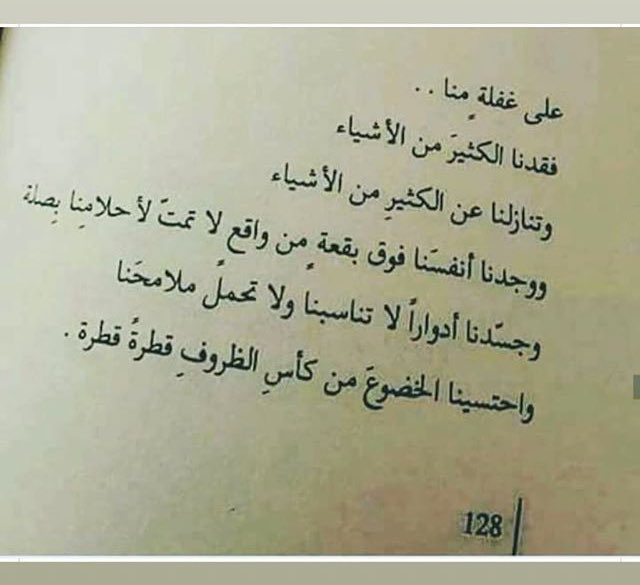 على غفلةٍ منا . .
فقدنا الكثيرَ من الأشياء
وتنازلنا عن الكثيرِ من الأشياء
ووجدنا أنفسَنا فوق بقعةٍ من واقع لا تمتّ لأحلامِنا بِصلة
وجسّدنا أدواراً لا تناسبنا ولا تحملُ ملامحَنا
واحتسينا الخضوعَ من كأسِ الظروفِ قطرةً قطرة .
128